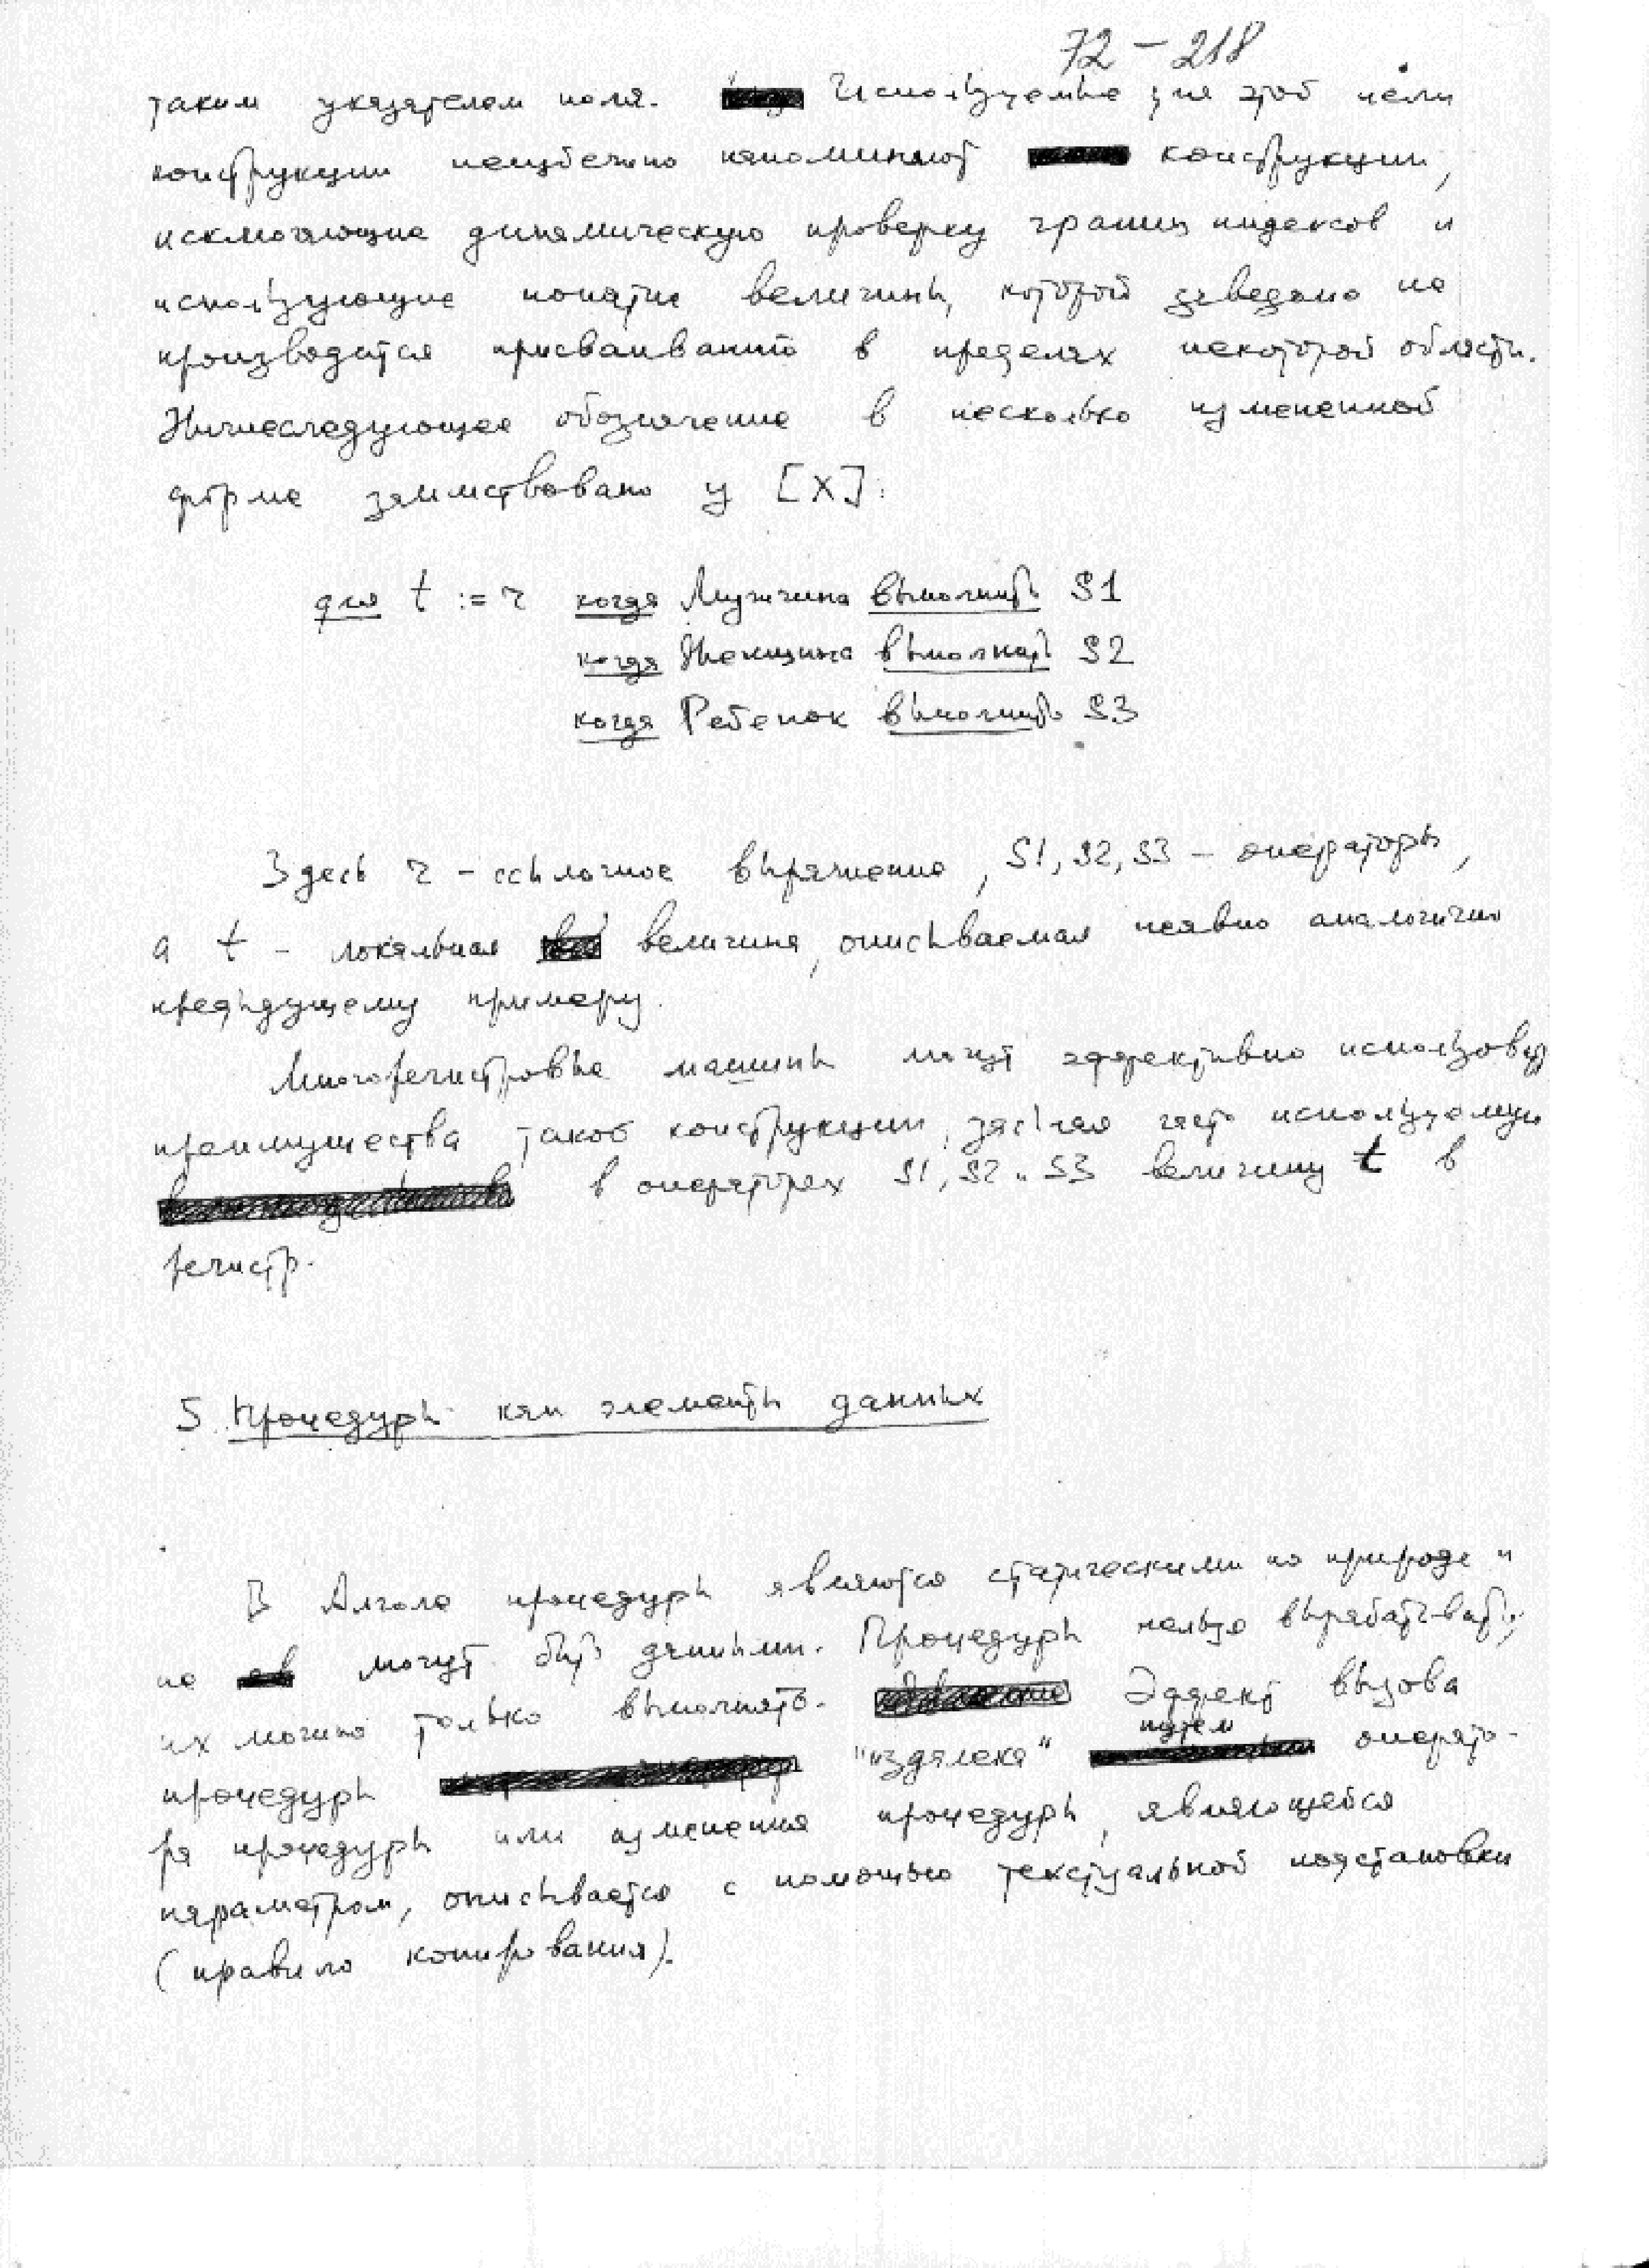 72 - 218
таким указателем поля. Используемые для этой цели
конструкции неизбежно напоминают конструкции,
исключающие динамическую проверку границ индексов и
использующие понятие величины, которой заведомо не
производится присваивания в пределах некоторой области.
Нижеследующее обозначение в несколько измененной
форме заимствовано у [X]:
для t := r когда Мужчина выполнить S1
когда Женщина выполнить S2
когда Ребенок выполнить S3
Здесь r - ссылочное выражение, S1, S2, S3 - операторы,
а t - локальная величина, описываемая неявно аналогично
предыдущему примеру.
Многорегистровые машины могут эффективно использовать
преимущества такой конструкции, засылая часто используемую
в операторах S1, S2 и S3 величину t в
регистр.
5. Процедуры как элементы данных
В Алголе процедуры являются статическими по природе и
не могут быть данными. Процедуры нельзя вырабатывать,
их можно только выполнять. Эффект вызова
процедуры "издалека" путем операто-
ра процедуры или изменения процедуры, являющейся
параметром, описывается с помощью текстуальной подстановки
(правило копирования).